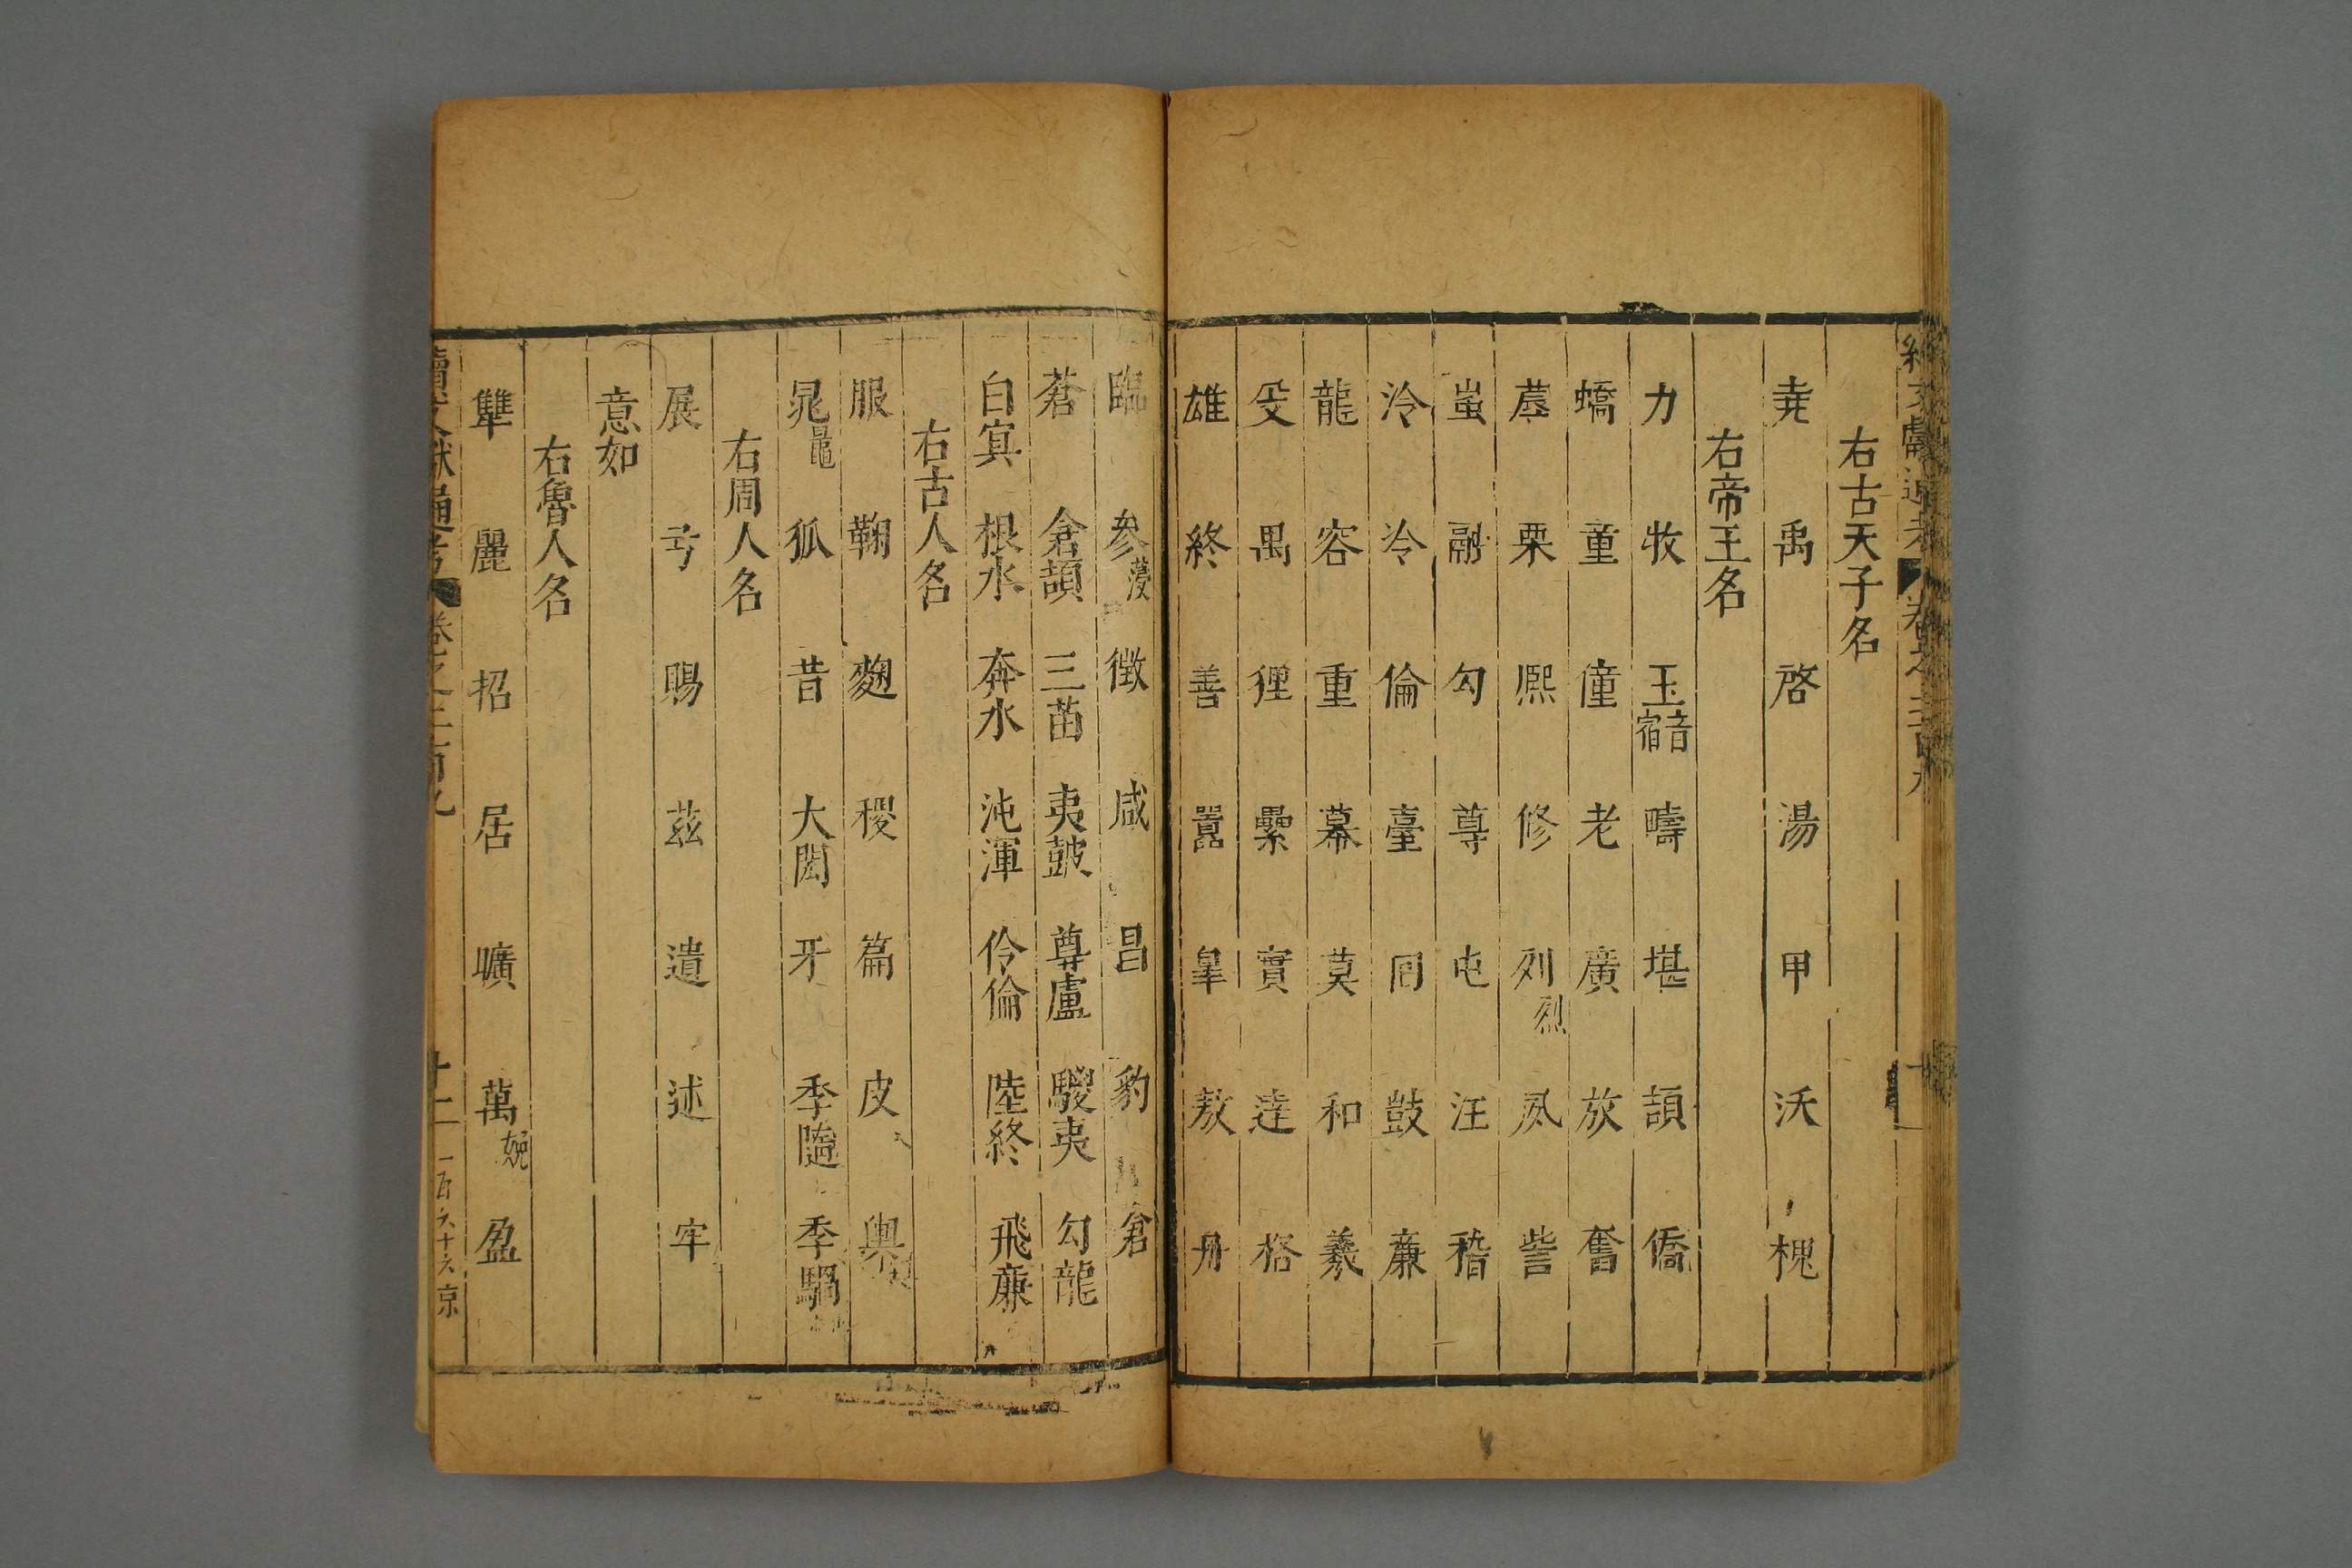 右古天子名
堯 禹 啓 湯 甲 沃 槐
右帝王名
力 牧 玉 音宿 疇 堪 頡 僑
蟜 童 僮 老 廣 放 奮
蓐 栗 熈 修 列 烈 夙 訾
蚩 融 勾 尊 屯 汪 稽
泠 冷 倫 臺 同 鼓 廉
龍 容 重 幕 莫 和 羲
殳 禺 狸 纍 實 逹 格
雄 終 善 囂 皋 敖 丹
臨 參 徵 咸 昌 豹 倉
蒼 倉頡 三苗 夷鼓 尊盧 騣夷 勾龍
白冥 根水 奔水 沌渾 伶倫 陸終 飛廉
右古人名
服 鞠 麹 稷 篇 皮 輿
晁 鼂 狐 昔 大閎 牙 季隨 季騧
右周人名
展 亏 賜 茲 遺 述 牢
意如
右魯人名
犨 麗 招 居 曠 萬 盈
續文獻通考 卷之二百九 十二 一百六十六 京